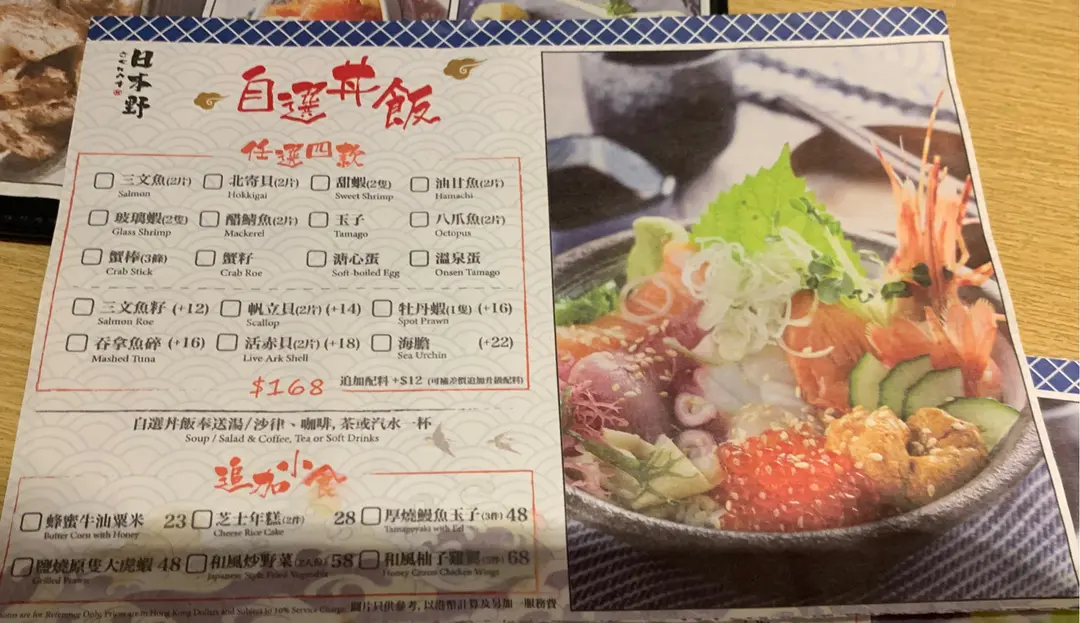 日本野
自選丼飯
任選四款
三文魚(2片) 北寄貝(2片) 甜蝦(2隻) 油甘魚(2片)
Salmon Hokkigai Sweet Shrimp Hamachi
玻璃蝦(2隻) 醋鯖魚(2片) 玉子 八爪魚(2片)
Glass Shrimp Mackerel Tamago Octopus
蟹棒(3條) 蟹籽 溏心蛋 溫泉蛋
Crab Stick Crab Roe Soft-boiled Egg Onsen Tamago
三文魚籽 (+12) 帆立貝(2片) (+14) 牡丹蝦(1隻) (+16)
Salmon Roe Scallop Spot Prawn
吞拿魚碎 (+16) 活赤貝(2片) (+18) 海膽 (+22)
Mashed Tuna Live Ark Shell Sea Urchin
$168 追加配料 +$12 (可補差價追加升級配料)
自選丼飯奉送湯/沙律、咖啡, 茶或汽水一杯
Soup / Salad & Coffee, Tea or Soft Drinks
追加小食
蜂蜜牛油粟米 23 芝士年糕(2件) 28 厚燒鰻魚玉子(3件) 48
Butter Corn with Honey Cheese Rice Cake Tamageyaki with Eel
鹽燒原隻大虎蝦 48 和風炒野菜 58 和風柚子雞翼 68
Grilled Prawn Japanese Style Fried Vegetable Honey Citrus Chicken Wings
are for Reference Only, Prices are in Hong Kong Dollars and Subject to 10% Service Charge. 圖片只供參考, 以港幣計算及另加一服務費